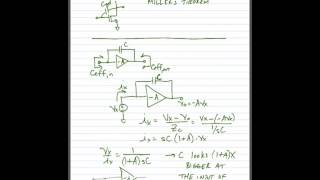 MILLER'S THEOREM
C
-A
Ceff,in
Ceff,out
ix
Vx
-A
Vo = -AVx
ix = Vx - Vo / Zc = Vx - (-AVx) / 1/sC
ix = sC (1+A) · Vx
Vx / ix = 1 / (1+A) sC
→ C LOOKS (1+A)X
BIGGER AT
THE INPUT OF